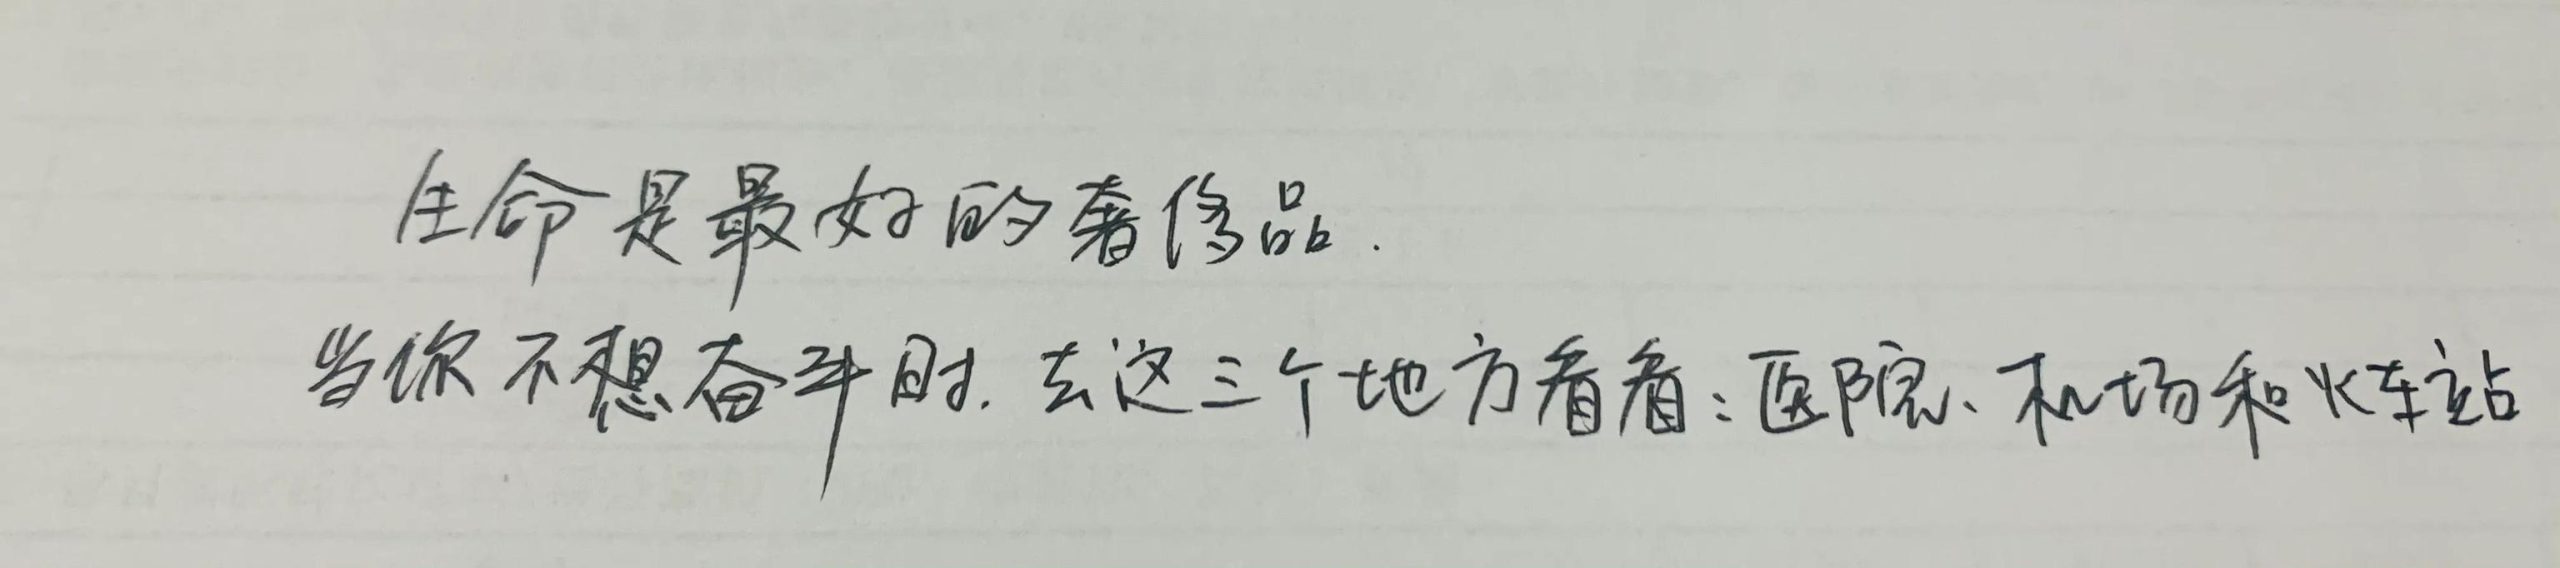 生命是最好的奢侈品.
当你不想奋斗时.去这三个地方看看:医院、机场和火车站